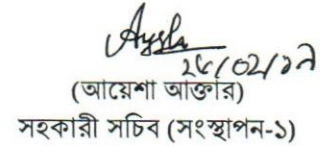 Aysha
(আয়েশা আক্তার)
সহকারী সচিব (সংস্থাপন-১)